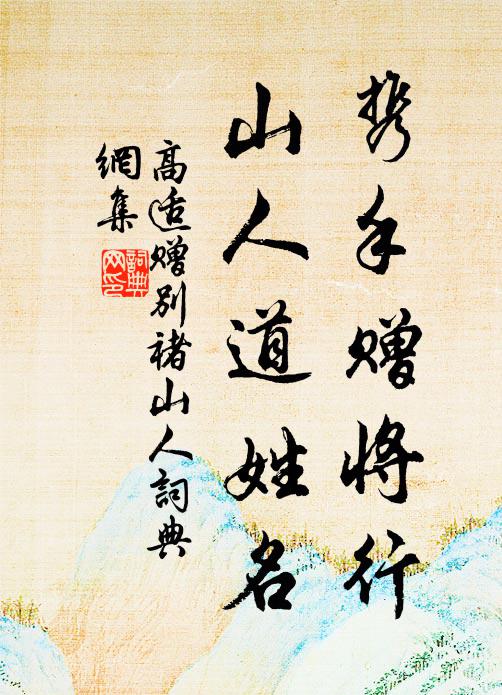 携手赠将行
山人道姓名
高适赠别褚山人詞典
網集
詞典
网印